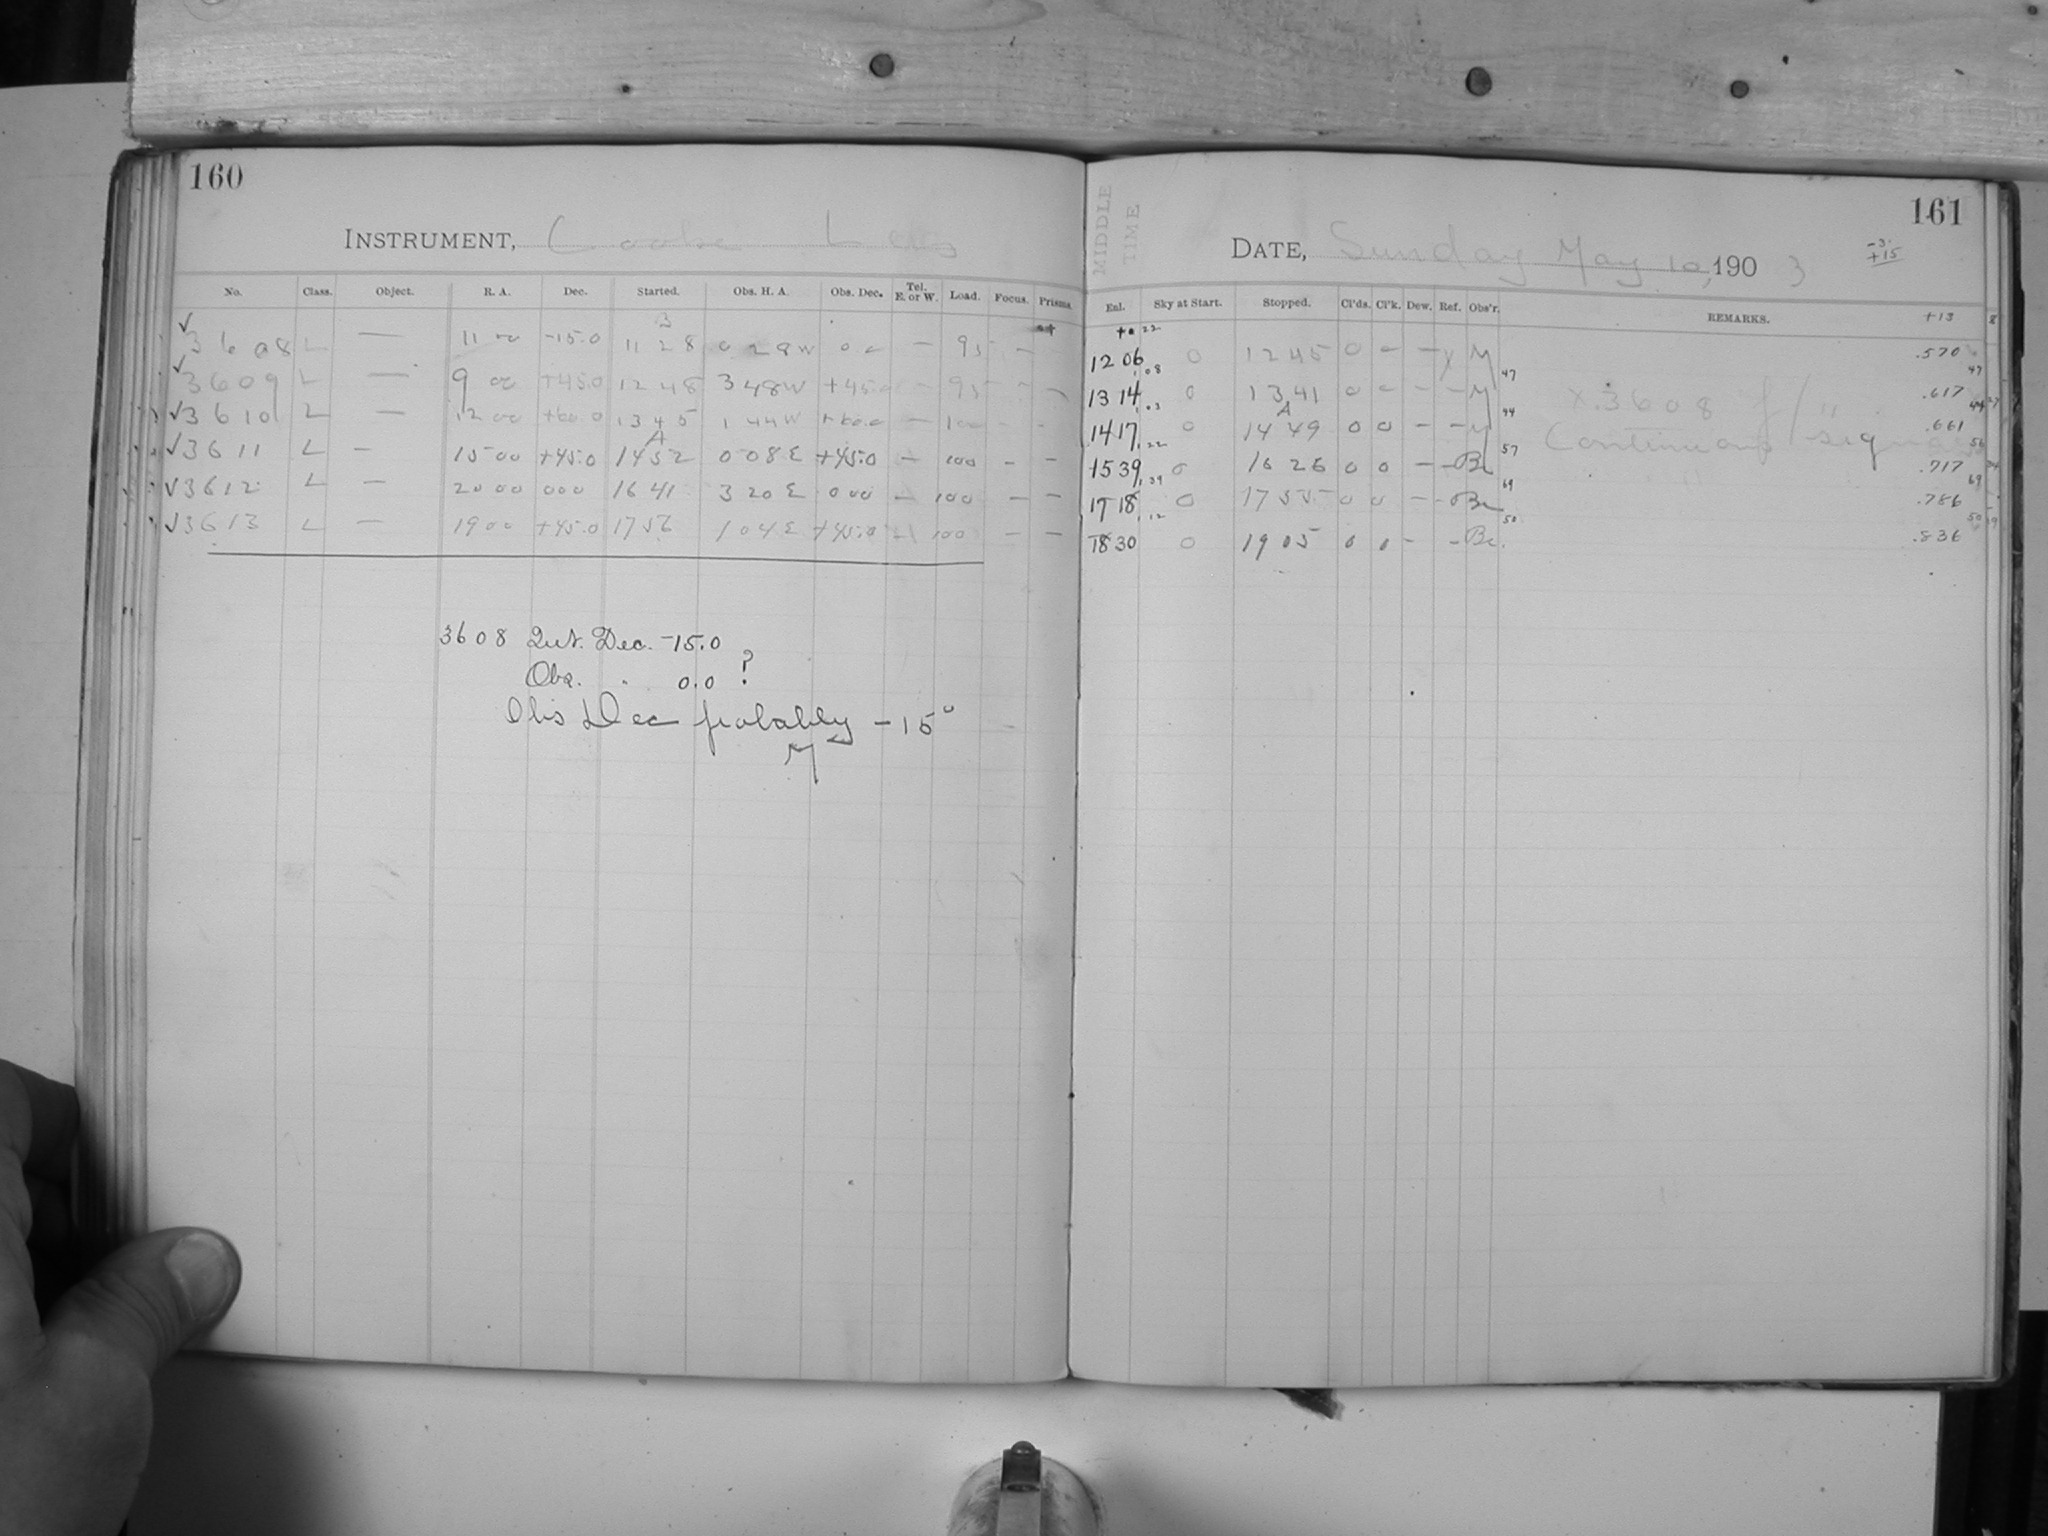 160
INSTRUMENT, Cooke Lens
No. Class. Object. R. A. Dec. Started. Obs. H. A. Obs. Dec. Tel. E. or W. Load. Focus. Prisms.
✓3608 L — 11 00 -15.0 11 28 0 28 W 0 0 — 95 — —
✓3609 L — 9 00 +45.0 12 48 3 48 W +45.0 — 95 — —
✓3610 L — 12 00 +60.0 13 45 1 44 W +60.0 — 100 — —
✓3611 L — 15 00 +45.0 14 52 0 08 E +45.0 — 100 — —
✓3612 L — 20 00 0 00 16 41 3 20 E 0 00 — 100 — —
✓3613 L — 19 00 +45.0 17 56 1 04 E +45.0 — 100 — —
3608 Int. Dec. -15.0
Obs. " 0.0 ?
Obs Dec probably -15°
M
161
MIDDLE TIME
DATE, Sunday May 10, 1903
-3
+15
Enl. Sky at Start. Stopped. Cl'ds. Cl'k. Dew. Ref. Obs'r. REMARKS. +13
12 06 0 12 45 0 — — X M .570
13 14 0 13 41 0 — — — M X.3608 .617
14 17 0 14 49 0 0 — — M Continuous .661
15 39 0 16 26 0 0 — — Bc .717
17 18 0 17 55 0 0 — — Bc .786
18 30 0 19 05 0 0 — — Bc. .836